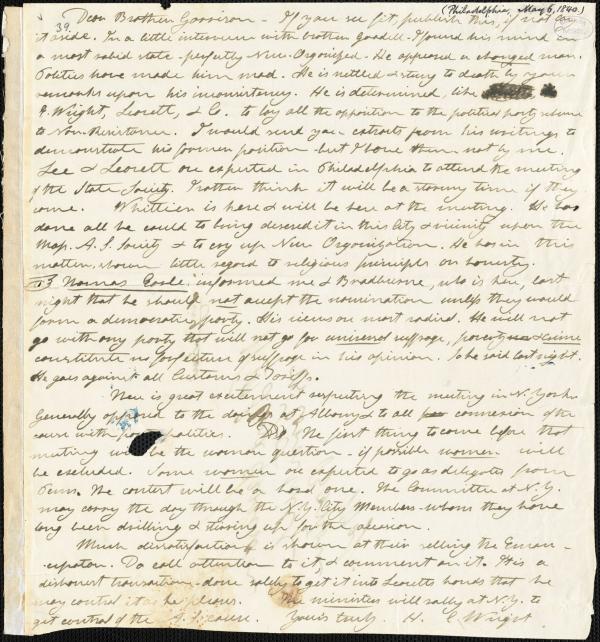 (Philadelphia, May 6, 1840.)
39. Dear Brother Garrison - If you see fit, publish this, if not lay
it aside. In a little interview with brother Goodell - I found his mind in
a most rabid state - perfectly New-Organized. He appeared a changed man.
Politics have made him mad. He is nettled & stung to death by your
remarks upon his inconsistency. He is determined, like
E. Wright, Leavitt, & Co. to lay all the opposition to the political party scheme
to Non-Resistance. I would send you extracts from his writings to
demonstrate his former position - but I have them not by me.
Lee & Leavitt are expected in Philadelphia to attend the meeting
of the State Society. I rather think it will be a stormy time if they
come. Whittier is here & will be here at the meeting. He has
done all he could to bring discredit in this City & vicinity upon the
Mass. A. S. Society & to cry up New Organization. He has in this
matter, shown little regard to religious principles or honesty.
Thomas Earle informed me & Bradburne, who is here, last
night that he should not accept the nomination unless they would
form a democratic party. His views are most radical. He will not
go with any party that will not go for universal suffrage, poverty & crime
constitute no forfeiture of suffrage in his opinion. So he said last night.
He goes against all Customs & Tariffs.
There is great excitement respecting the meeting in N. York.
Generally opposed to the doings at Albany & to all connexion of the
cause with politics. The first thing to come before that
meeting will be the woman question - if possible women will
be excluded. Some women are expected to go as delegates from
Penn. The contest will be a hard one. The Committee at N. Y.
may carry the day through the N. Y. City Members - whom they have
long been drilling & stirring up for the occasion.
Much dissatisfaction is shown at their selling the Eman-
cipator. Do call attention to it, & comment on it. It is a
dishonest transaction - done solely to get it into Leavitts hands that he
may control it as he pleases. The ministers will rally at N. Y. to
get control of the A. S. cause. Yours truly. H. C. Wright